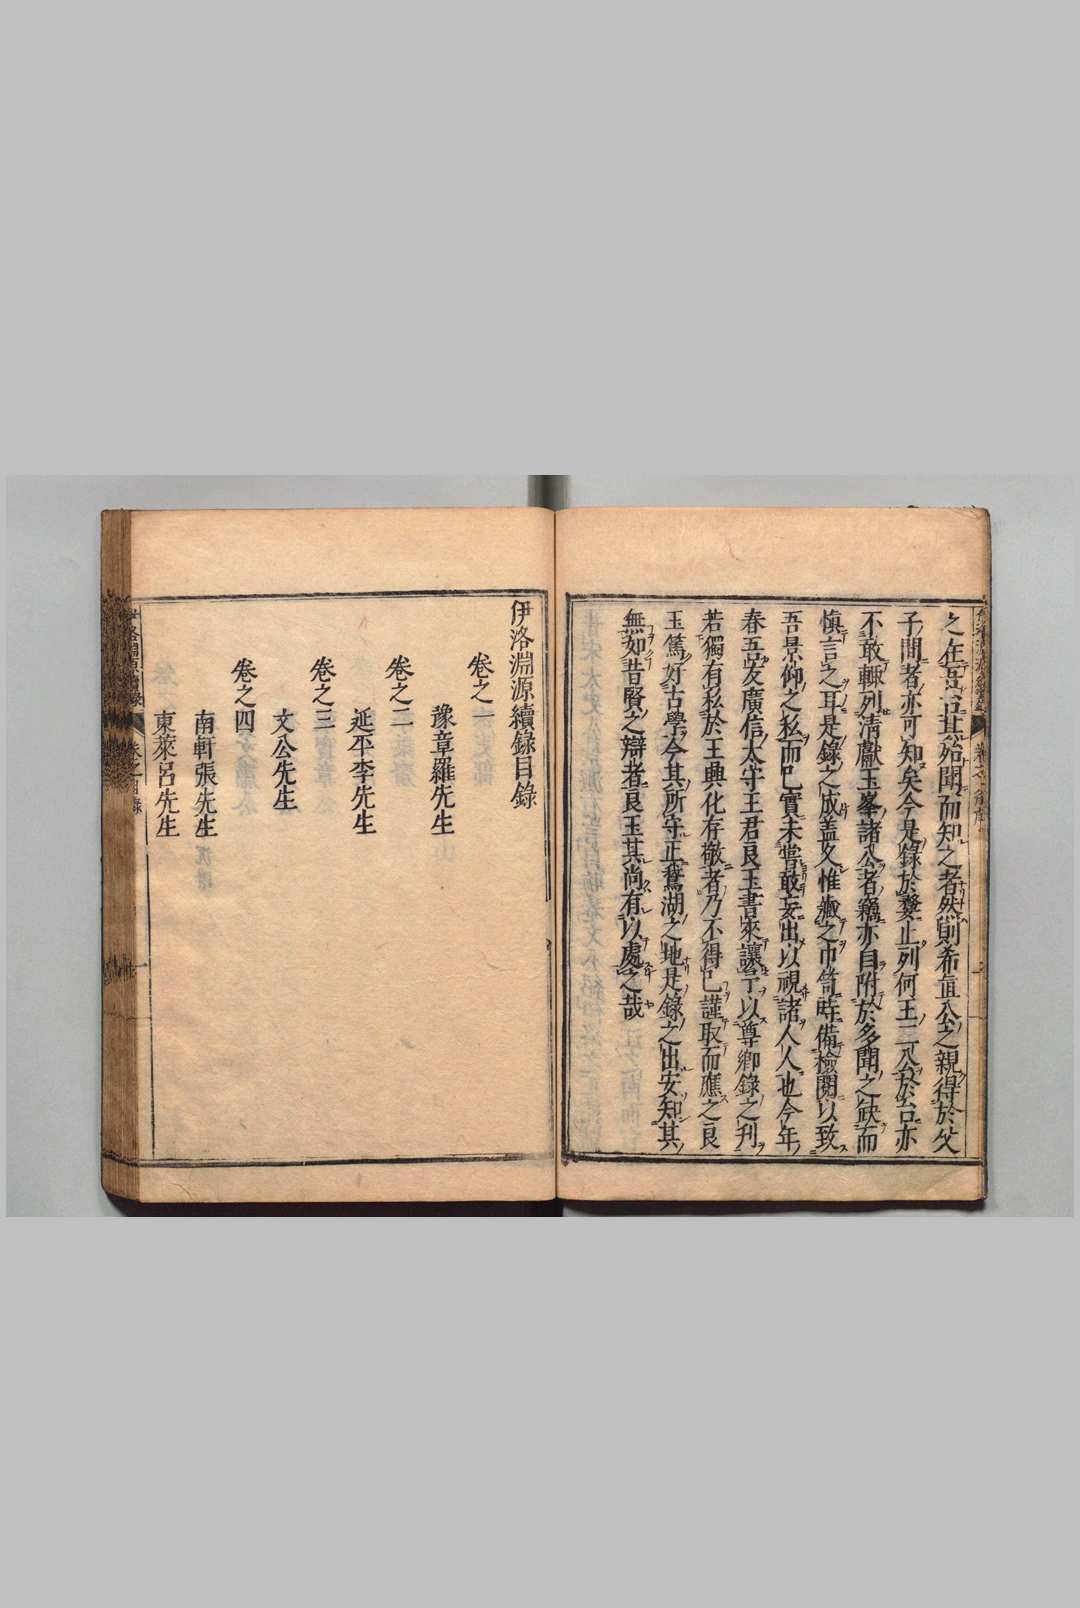 之在吾台其殆聞而知之者然則希直公之親得於父
子間者亦可知矣今是錄於婺止列何王二公於台亦
不敢輒列清獻玉峯諸公者竊亦自附於多聞之缺而
慎言之耳是錄之成盖久惟藏之巾笥時備檢閱以致
吾景仰之私而已實未嘗敢妄出以視諸人人也今年
春吾友廣信太守王君良玉書來讓予以尊鄉錄之刋
若獨有私於王典化存敬者乃不得已謹取而應之良
玉篤好古學今其所守正鵞湖之地是錄之出安知其
無如昔賢之辯者良玉其尚有以處之哉
伊洛淵源續錄目錄
卷之一
豫章羅先生
卷之二
延平李先生
卷之三
文公先生
卷之四
南軒張先生
東萊呂先生